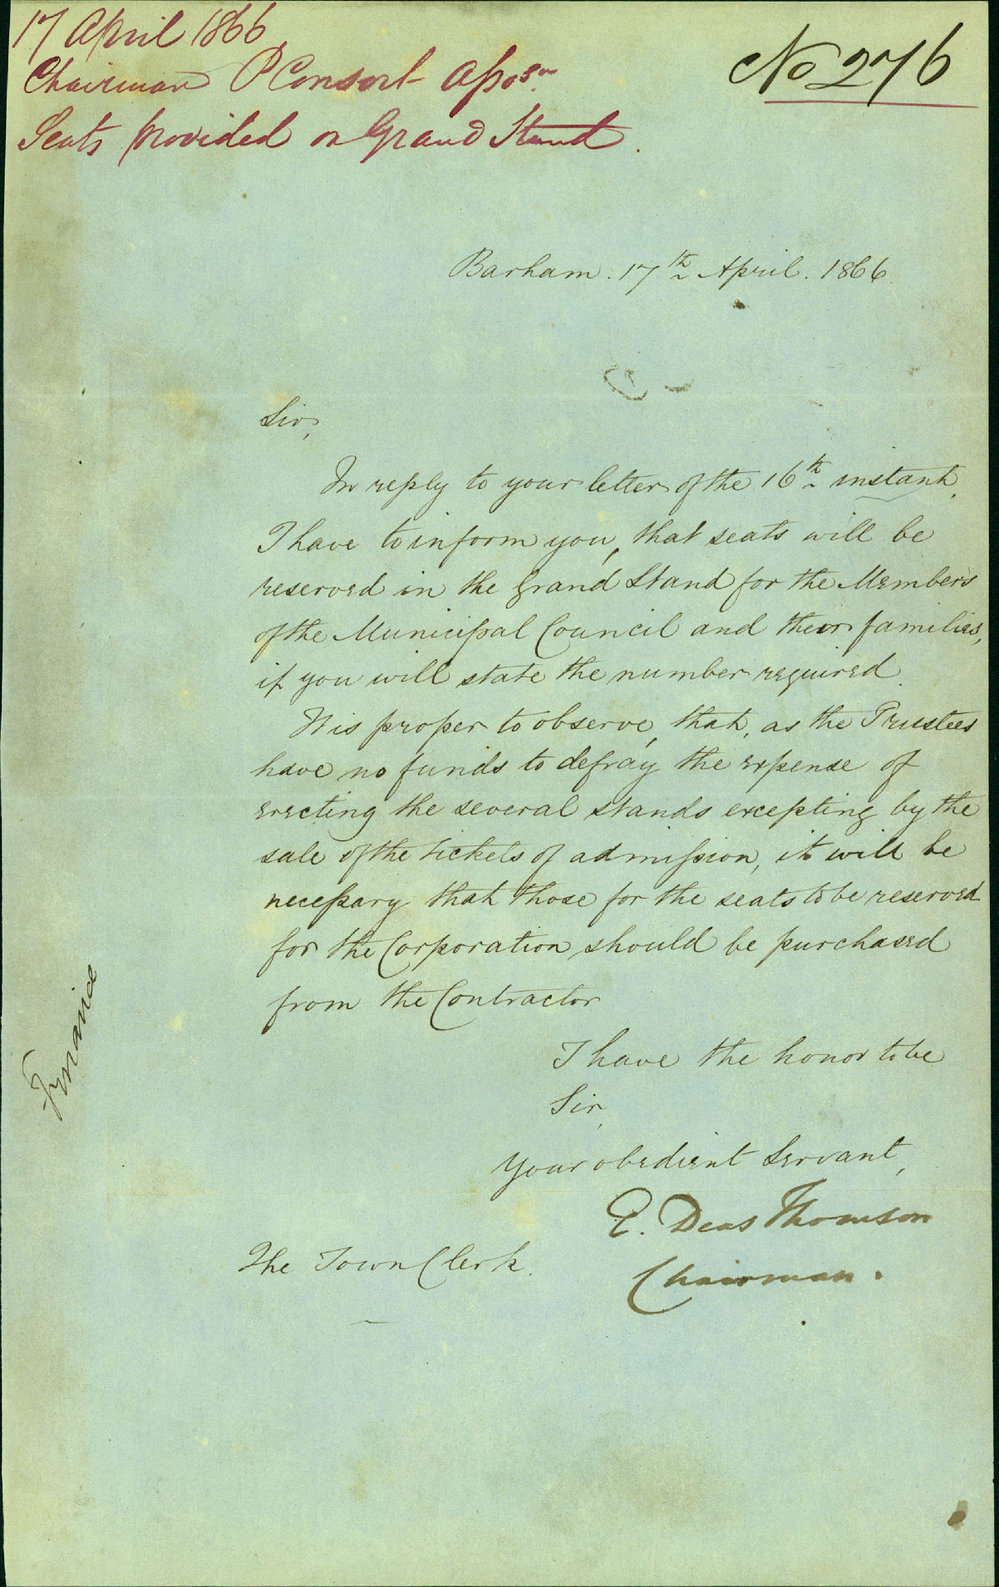 17 April 1866
Chairman P Consort Asso^n.
Seats provided on Grand Stand.
No 276
Barham. 17th April. 1866.
Sir,
In reply to your letter of the 16th instant,
I have to inform you, that seats will be
reserved in the Grand Stand for the Members
of the Municipal Council and their families,
if you will state the number required.
It is proper to observe, that, as the Trustees
have no funds to defray the expense of
erecting the several stands excepting by the
sale of the tickets of admission, it will be
necessary that those for the seats to be reserved
for the Corporation should be purchased
from the Contractor
I have the honor to be
Sir,
Your obedient Servant,
E. Deas Thomson
Chairman.
The Town Clerk.
Finance